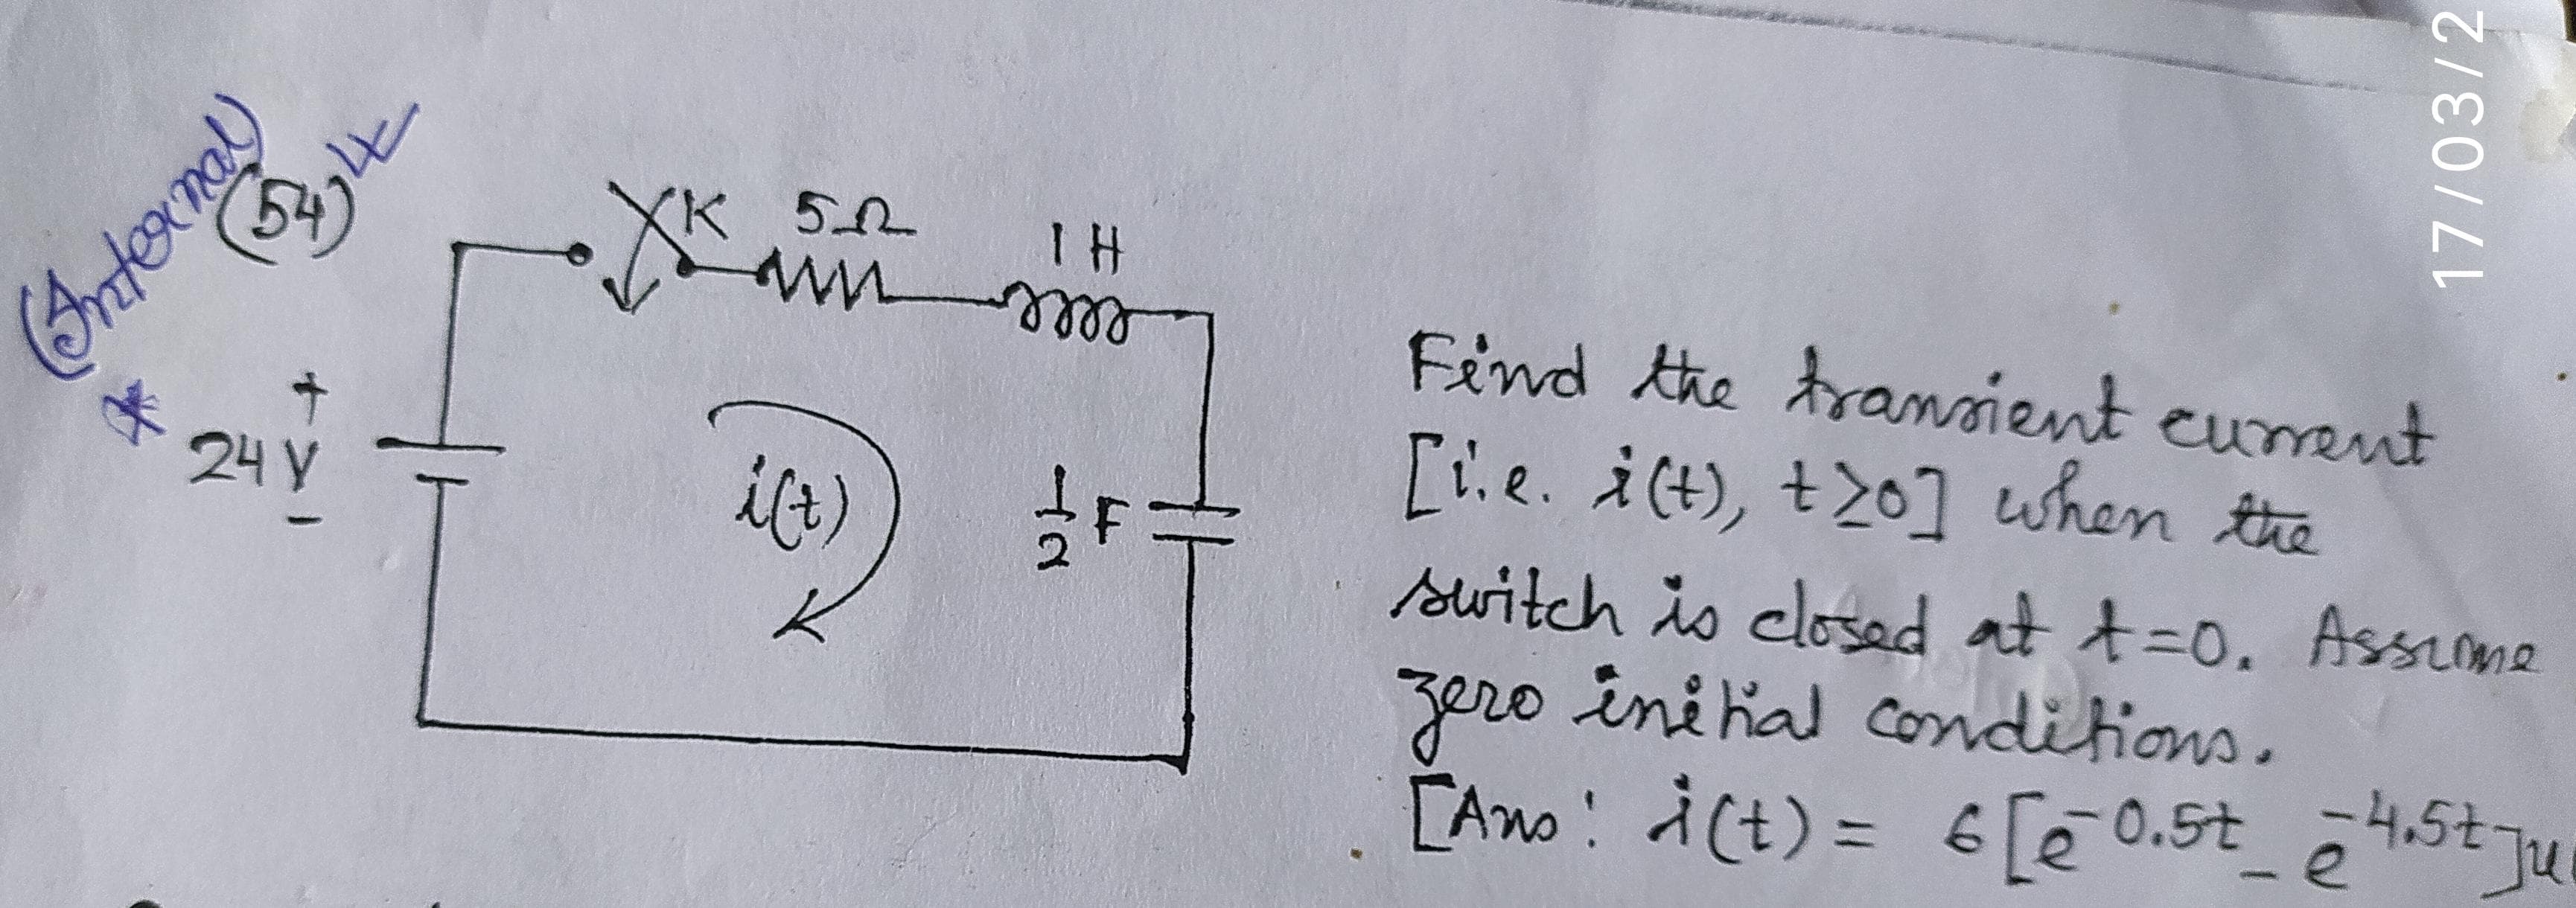 (Internal)
(54)
K
5Ω
1 H
+
24 V
-
i(t)
1/2 F
Find the transient current
[i.e. i(t), t≥0] when the
switch is closed at t=0. Assume
zero initial conditions.
[Ans: i(t) = 6[e^-0.5t - e^-4.5t]u(
17/03/2